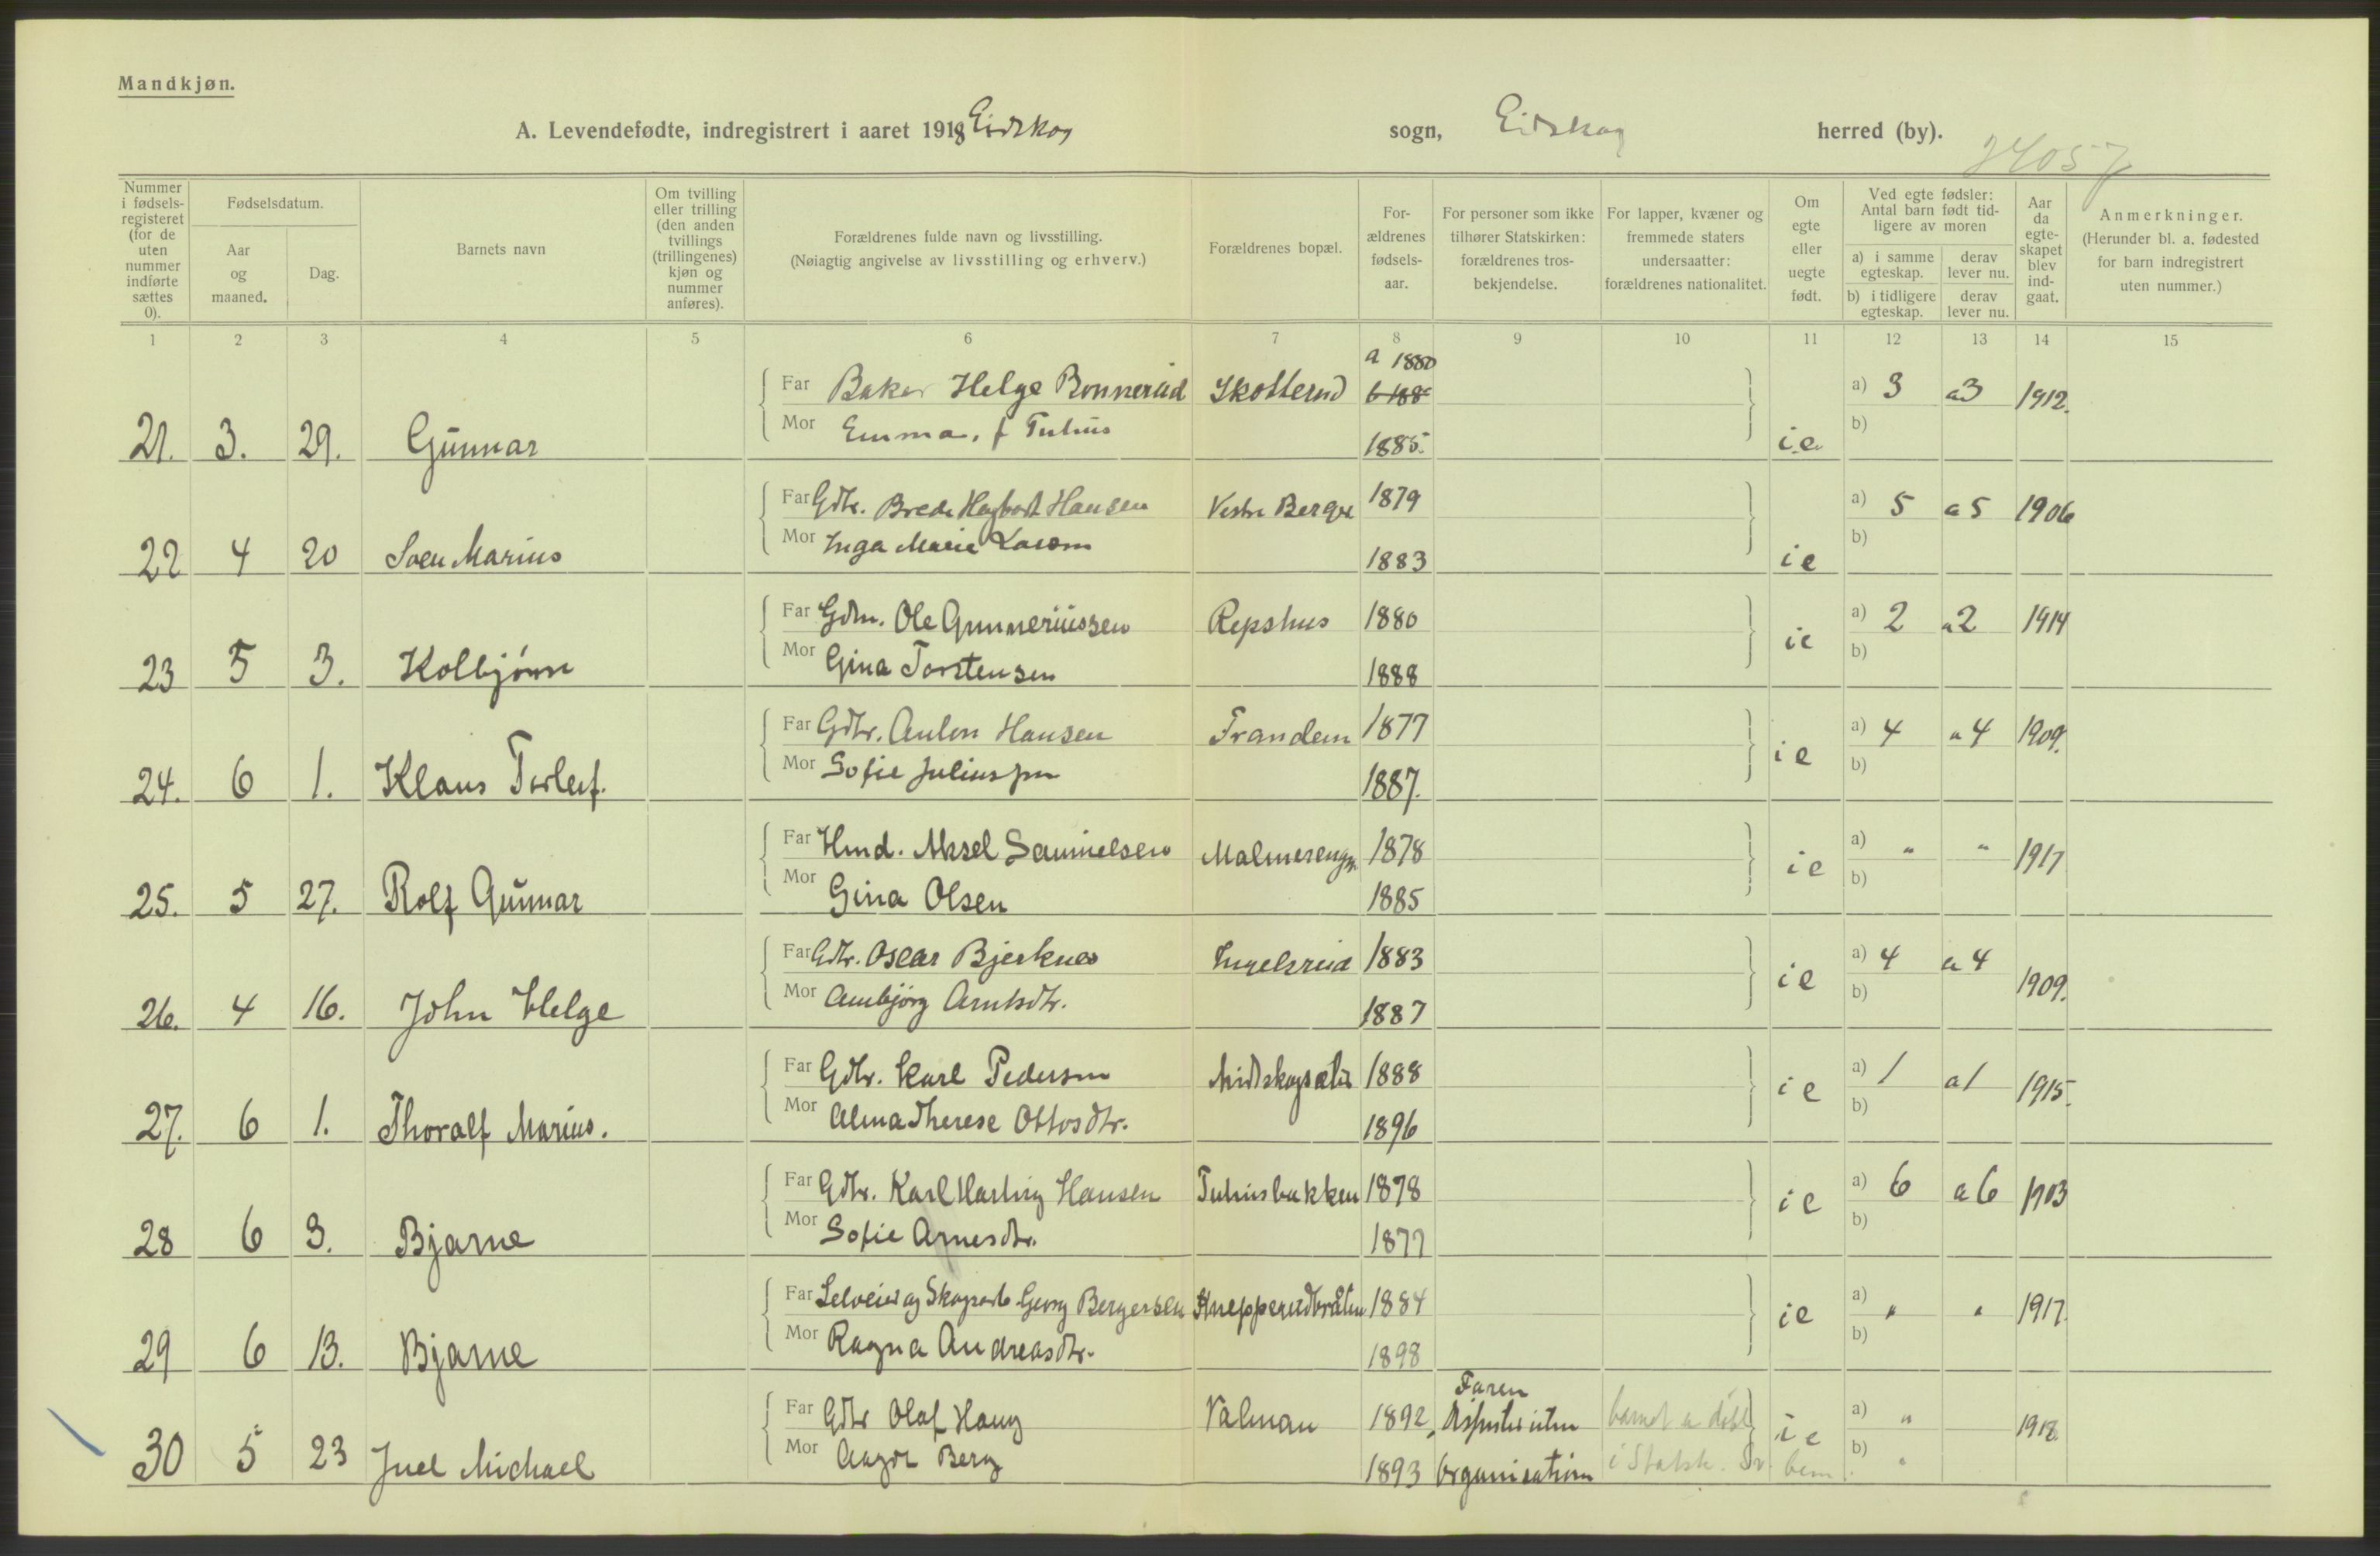 Mandkjøn.
A. Levendefødte, indregistrert i aaret 1918 Eidskog sogn, Eidskog herred (by).
24057
Nummer i fødsels-registeret (for de uten nummer indførte sættes 0).
Fødselsdatum.
Aar og maaned.
Dag.
Barnets navn
Om tvilling eller trilling (den anden tvillings (trillingenes) kjøn og nummer anføres).
Forældrenes fulde navn og livsstilling.
(Nøiagtig angivelse av livsstilling og erhverv.)
Forældrenes bopæl.
For-ældrenes fødsels-aar.
For personer som ikke tilhører Statskirken: forældrenes tros-bekjendelse.
For lapper, kvæner og fremmede staters undersaatter: forældrenes nationalitet.
Om egte eller uegte født.
Ved egte fødsler: Antal barn født tid-ligere av moren
a) i samme egteskap.
derav lever nu.
b) i tidligere egteskap.
derav lever nu.
Aar da egte-skapet blev ind-gaat.
Anmerkninger.
(Herunder bl. a. fødested for barn indregistrert uten nummer.)
1 2 3 4 5 6 7 8 9 10 11 12 13 14 15
a 1880
Far Baker Helge Bonnerud Skotterud 6 188 a) 3 a3 1912.
Mor Emma, f Tulius b)
21. 3. 29. Gunnar 1885. i.e.
Far Gdbr. Brede Hagbart Hansen Vestre Berger 1879 a) 5 a5 1906
Mor Inga Marie b)
22 4 20 Marius 1883 i e
Far Gdm. Ole Gunneriussen Repshus 1880 a) 2 a2 1914
Mor Gina Torstensen ie b)
23 5 3. Kolbjørn 1888
Far Gdbr. Anton Hansen Trandem 1877 a) 4 a4 1909.
Mor Sofie Juliusson i e b)
24. 6 1. Klaus Torleif. 1887.
Far Hmd. Aksel Samuelsen Malmerengn 1878 a) " " 1917
Mor Gina Olsen i e b)
25. 5 27. Rolf Gunnar 1885
Far Gdbr. Oscar Bjerknes Ingelsrud 1883 a) 4 a4 1909.
Mor Arnbjørg Arntsdtr. i e b)
26. 4 16. John Helge 1887
Far Gdbr. Karl Pedersen Midtskogsæter 1888 a) 1 a1 1915.
Mor Alma Therese Ottosdtr. i e b)
27. 6 1. Thoralf Marius. 1896
Far Gdbr. Karl Harting Hansen Tuliusbakken 1878 a) 6 a6 1903
Mor Sofie Arnesdtr. i e b)
28 6 3. Bjarne 1877
Far Selveier og Skogsarb. Georg Bergersen Knepperudbråten 1884 a) " " 1917
Mor Ragna Andreasdtr. ie b)
29 6 13. Bjarne 1898
Faren
Far Gdbr Olaf Haug Valman 1892, uten barnet er døbt a) " 1918
Mor Aagot Berg i e b) "
30 5 23 Juel Michael 1893 Organisation i Statsk.